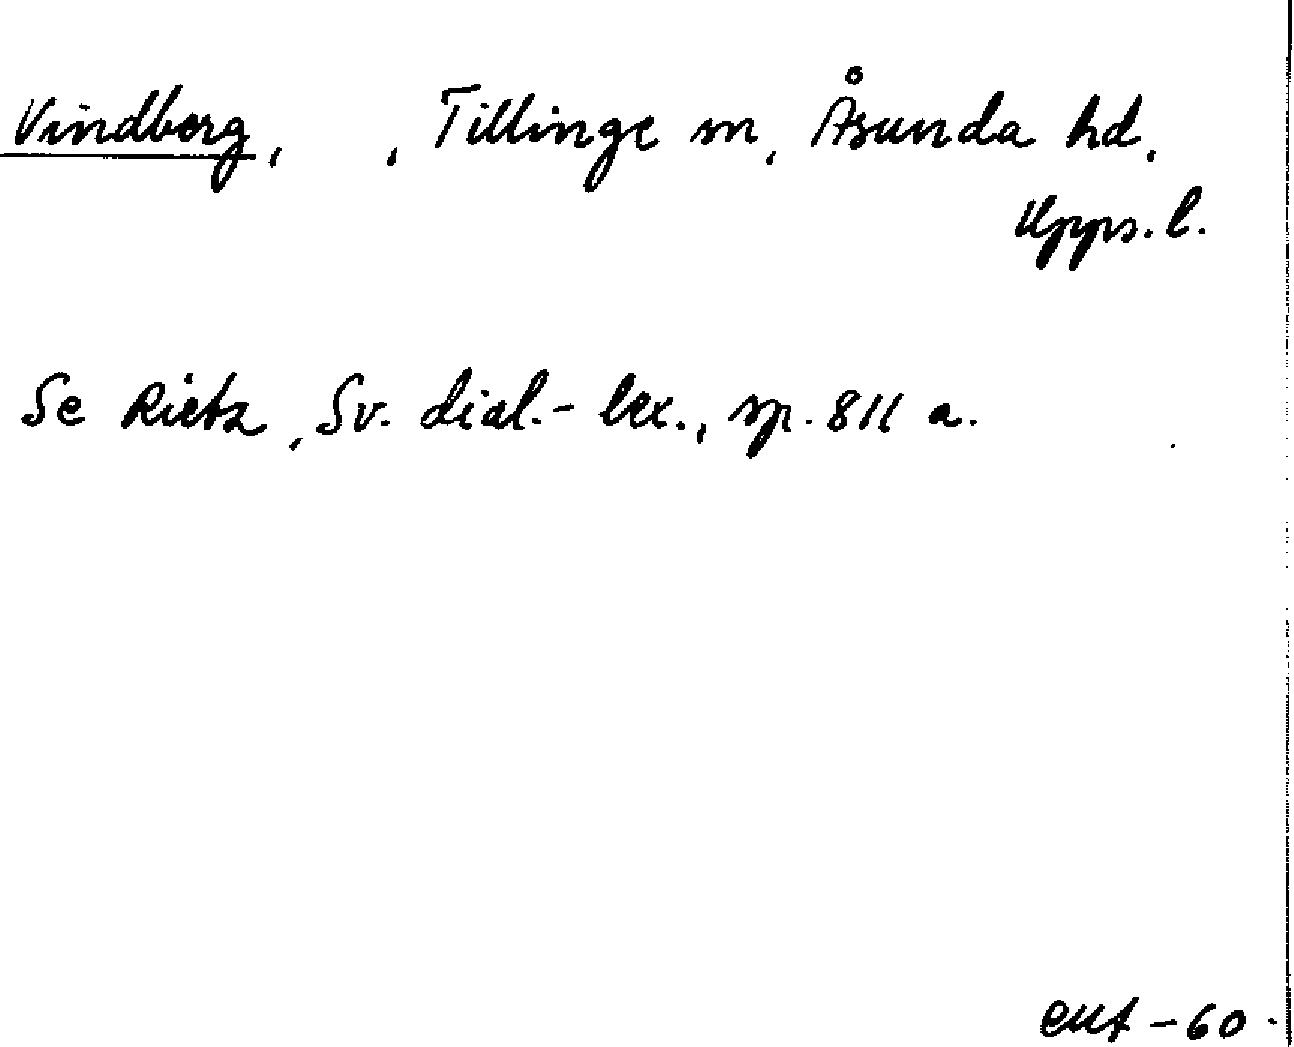 Vindberg,    , Tillinge sn, Åsunda hd,
Upps. l.
Se Rietz, Sv. dial.-lex., sp. 811 a.
-60.